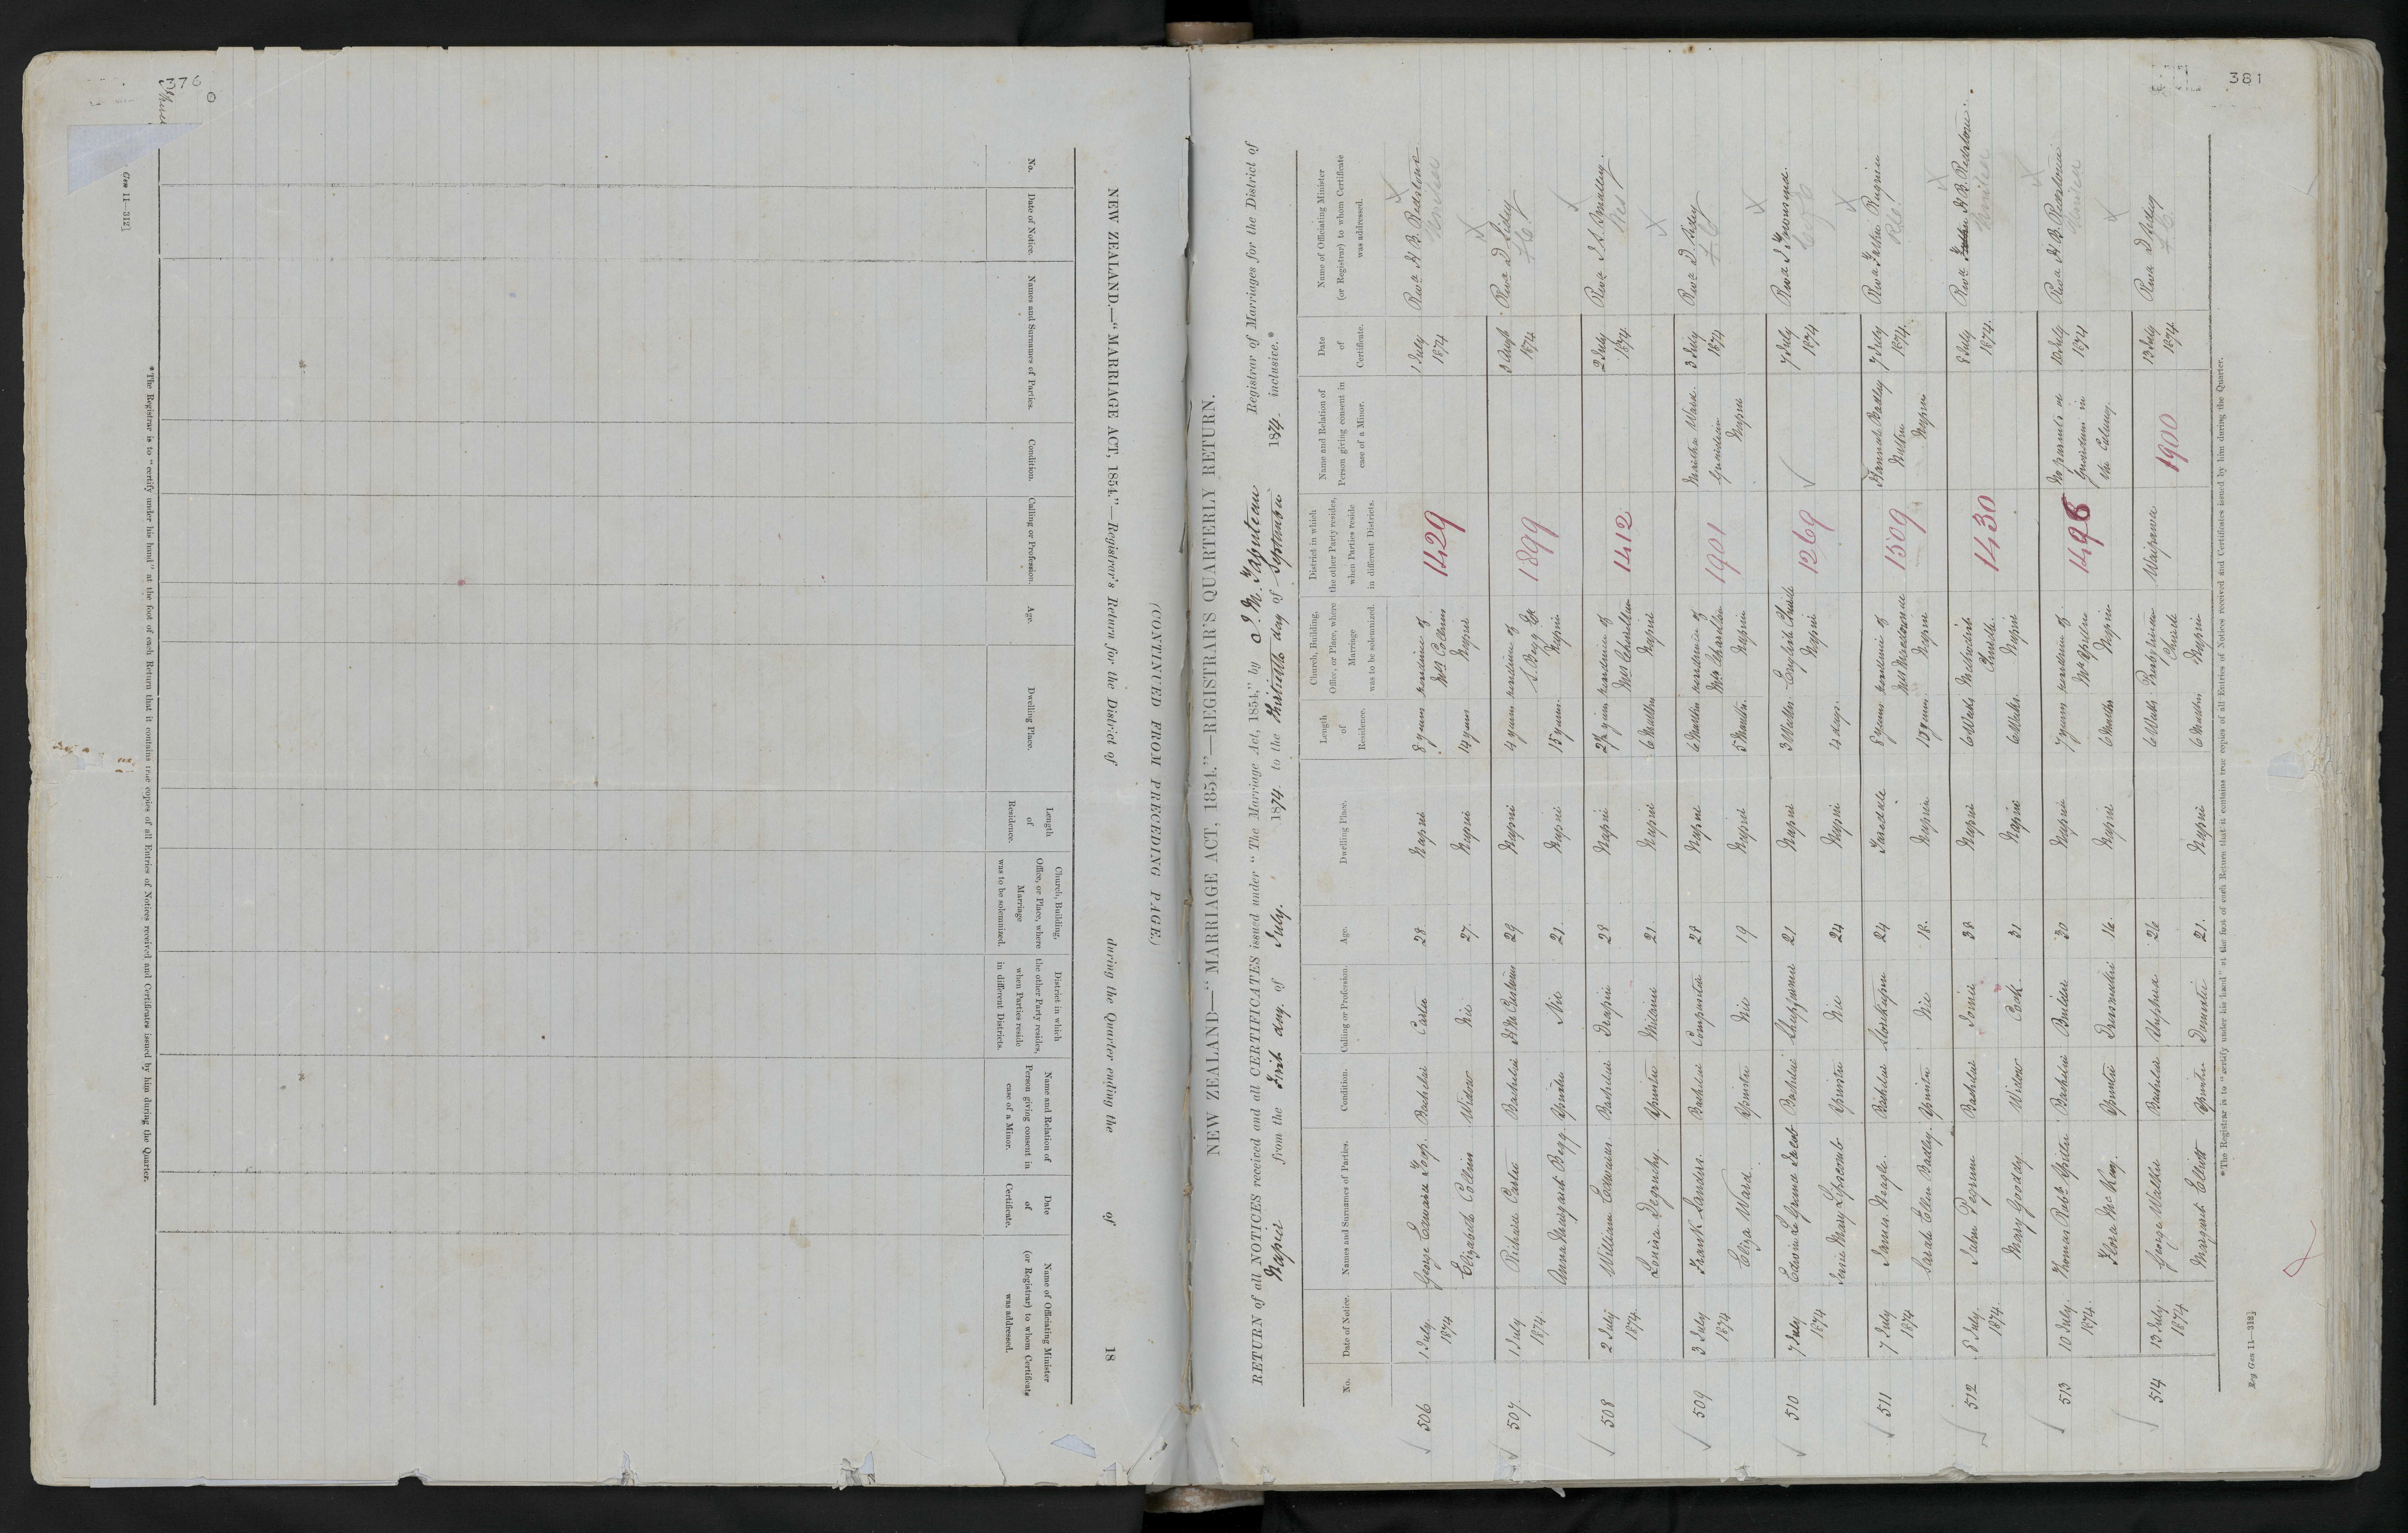 376
NEW ZEALAND.—"MARRIAGE ACT, 1854."—Registrar's Return for the District of during the Quarter ending the of 18
(CONTINUED FROM PRECEDING PAGE.)
No.
Date of Notice.
Names and Surnames of Parties.
Condition.
Calling or Profession.
Age.
Dwelling Place.
Length of Residence.
Church, Building, Office, or Place, where Marriage was to be solemnized.
District in which the other Party resides, when Parties reside in different Districts.
Name and Relation of Person giving consent in case of a Minor.
Date of Certificate.
Name of Officiating Minister (or Registrar) to whom Certificate was addressed.
* The Registrar is to "certify under his hand" at the foot of each Return that it contains true copies of all Entries of Notices received and Certificates issued by him during the Quarter.
Gen 11—312]
381
NEW ZEALAND—"MARRIAGE ACT, 1854."—REGISTRAR'S QUARTERLY RETURN.
RETURN of all NOTICES received and all CERTIFICATES issued under "The Marriage Act, 1854," by Registrar of Marriages for the District of
Napier from the First day of July. 1874 to the Thirtieth day of September 1874 inclusive.*
No.
Date of Notice.
Names and Surnames of Parties.
Condition.
Calling or Profession.
Age.
Dwelling Place.
Length of Residence.
Church, Building, Office, or Place, where Marriage was to be solemnized.
District in which the other Party resides, when Parties reside in different Districts.
Name and Relation of Person giving consent in case of a Minor.
Date of Certificate.
Name of Officiating Minister (or Registrar) to whom Certificate was addressed.
506 1 July 1874 George Edward Bachelor Carter 28 Napier 8 years residence of 1429 1 July 1874 Revd H. B. Redstone
Elizabeth Collins Widow 27 Napier 14 years Mrs Collins Napier
507 1 July 1874 Richard Carter Bachelor 29 Napier 4 years residence of 1899 Revd D Sidey
Anna Margaret Begg Spinster 21 Napier 15 years S. Begg Napier
508 2 July 1874 William Edwards Bachelor Draper 28 Napier 2½ years residence of 1412 2 July 1874 Revd J. S. Smalley
Louisa Degruchy Spinster Milliner 21 Napier 6 Months Napier
509 3 July 1874 Frank Sanders Bachelor Compositor 28 Napier 6 Months residence of 1901 Martha Ward 3 July 1874 Revd D. Sidey
Eliza Ward Spinster 19 Napier 5 Months Napier Guardian Napier
510 7 July 1874 Edwin Le Grand Bachelor 21 Napier 3 Weeks English Church 1269 7 July 1874 Revd J Townsend
Mary Lipscomb Spinster 24 Napier 4 days Napier
511 7 July 1874 James Bachelor Storekeeper 24 Taradale 8 years residence of 1509 Hannah Badley 7 July 1874 Revd Father Reignier
Sarah Ellen Badley Spinster 18 Napier Napier Mother Napier
512 8 July 1874 John Bachelor Joiner 38 Napier 6 Weeks Methodist 1430 8 July 1874 Revd H. B. Redstone
Mary Goody Widow Cook 31 Napier 6 Weeks Church Napier
513 10 July 1874 Thomas Robt Bachelor 30 Napier 7 years residence of No parents or 10 July 1874 Revd H. B. Redstone
Flora McKay Spinster Dressmaker 16 Napier 6 Months Napier Guardian in the Colony
514 13 July 1874 George Walker Bachelor Shepherd 26 6 Weeks Presbyterian Waipawa 1900 13 July 1874 Revd D Sidey
Margaret Elliott Spinster Domestic 21 Napier 6 Months Church Napier
* The Registrar is to "certify under his hand" at the foot of each Return that it contains true copies of all Entries of Notices received and Certificates issued by him during the Quarter.
Reg Gen 11—312]